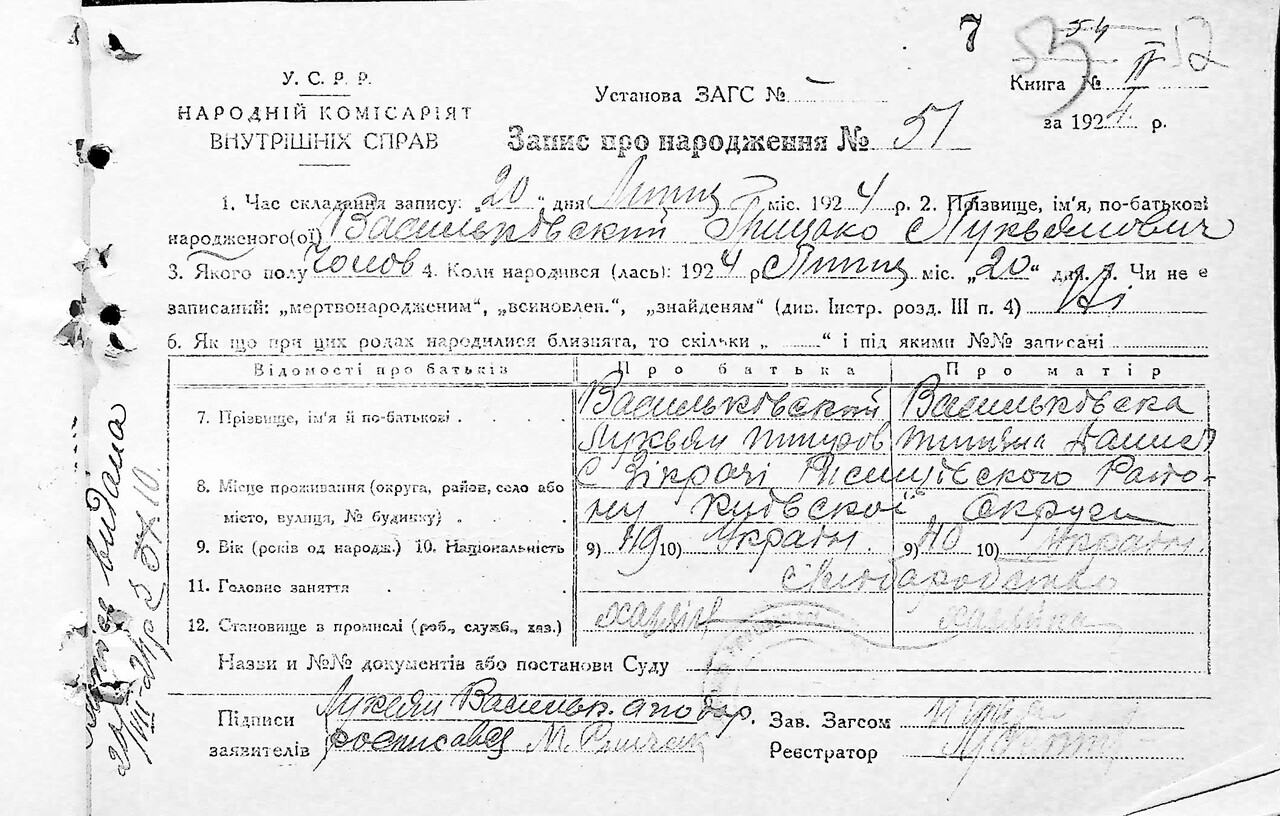 7
54
53
52
У. С. Р. Р.
НАРОДНІЙ КОМІСАРІЯТ
ВНУТРІШНІХ СПРАВ
Установа ЗАГС № —
Книга № II
за 1924 р.
Запис про народження № 51
1. Час складання запису: „20“ дня Липця міс. 1924 р. 2. Прізвище, ім'я, по-батькові
народженого(ої) Васильковский Грицько Лукьянович
3. Якого полу Чолов 4. Коли народився (лась): 1924 р. Липця міс. „20“ дня. 5. Чи не є
записаний: „мертвонародженим“, „всиновлен.“, „знайденям“ (див. Інстр. розд. III п. 4) Ні
6. Як що при цих родах народилися близнята, то скільки „ “ і під якими №№ записані
Відомості про батьків Про батька Про матір
7. Прізвище, ім'я й по-батькові Васильковский Васильковска
Лукьян
8. Місце проживання (округа, район, село або С Зікрачі Ржищівского Райо-
місто, вулиця, № будинку) ну Київскої Округи
9. Вік (років од народж.) 10. Національність 9) 49 10) Україн. 9) 40 10) Україн.
11. Головне заняття Хлиборобство
12. Становище в промислі (роб., служб., хаз.) хазяін хазяйка
Назви и №№ документів або постанови Суду
Підписи Лукеян Васильк. Зав. Загсом
заявителів росписавсь М. Реєстратор
видана